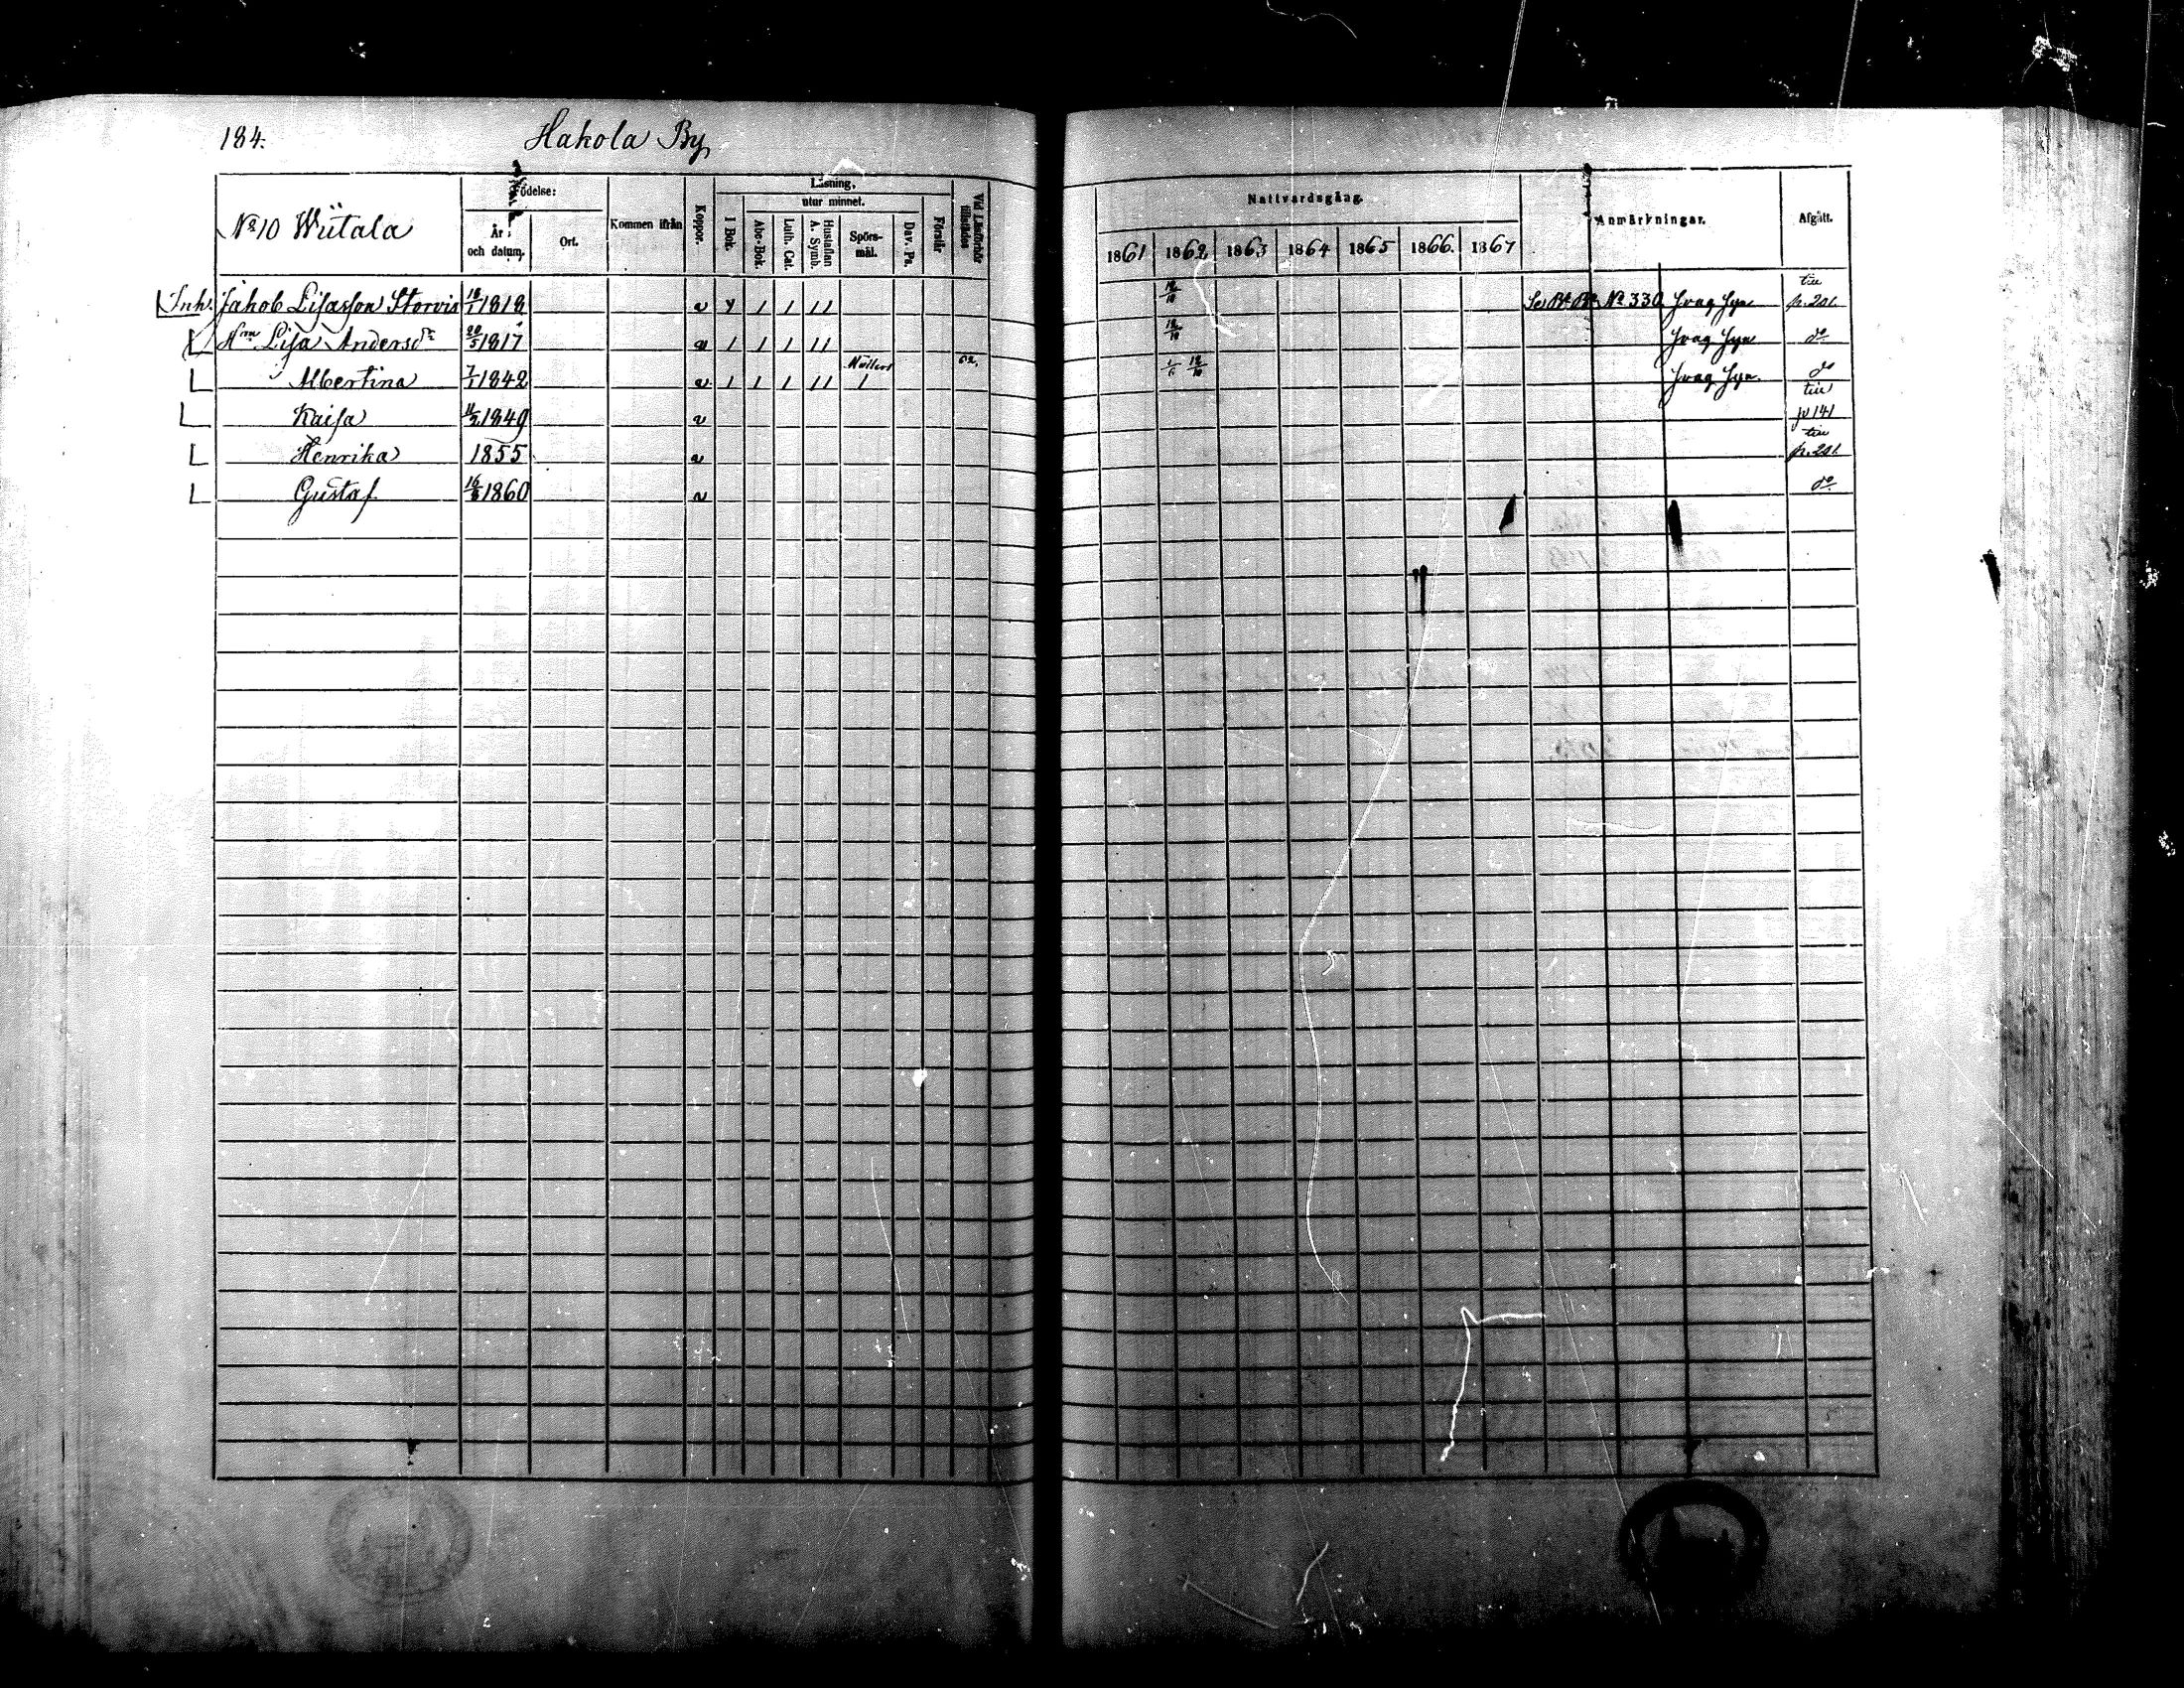 184.
Hakola By
No 10 Wiitala
Födelse:
År och datum.
Ort.
Kommen ifrån
Koppor.
Läsning,
utur minnet.
I Bok.
Abc-Bok.
Luth. Cat.
Hustaflan A. Symb.
Spörsmål.
Dav. Ps.
Förstår
Vid Läseförhör tillstädes
Nattvardsgång.
1861 1862 1863 1864 1865 1866. 1867
Anmärkningar.
Afgått.
Inh. Jakob Lisasson Storvis 18/1 1818 v y 1 1 11 12/10 No 330 svag syn till p. 201.
Lisa Andersdr 20/5 1817 v 1 1 1 11 12/10 svag syn do
Albertina 7/1 1842 v 1 1 1 11 1 62. 12/10 svag syn. do
Kaisa 11/2 1849 v till p 141
Henrika 1855 v till p. 201.
Gustaf 1860 v do